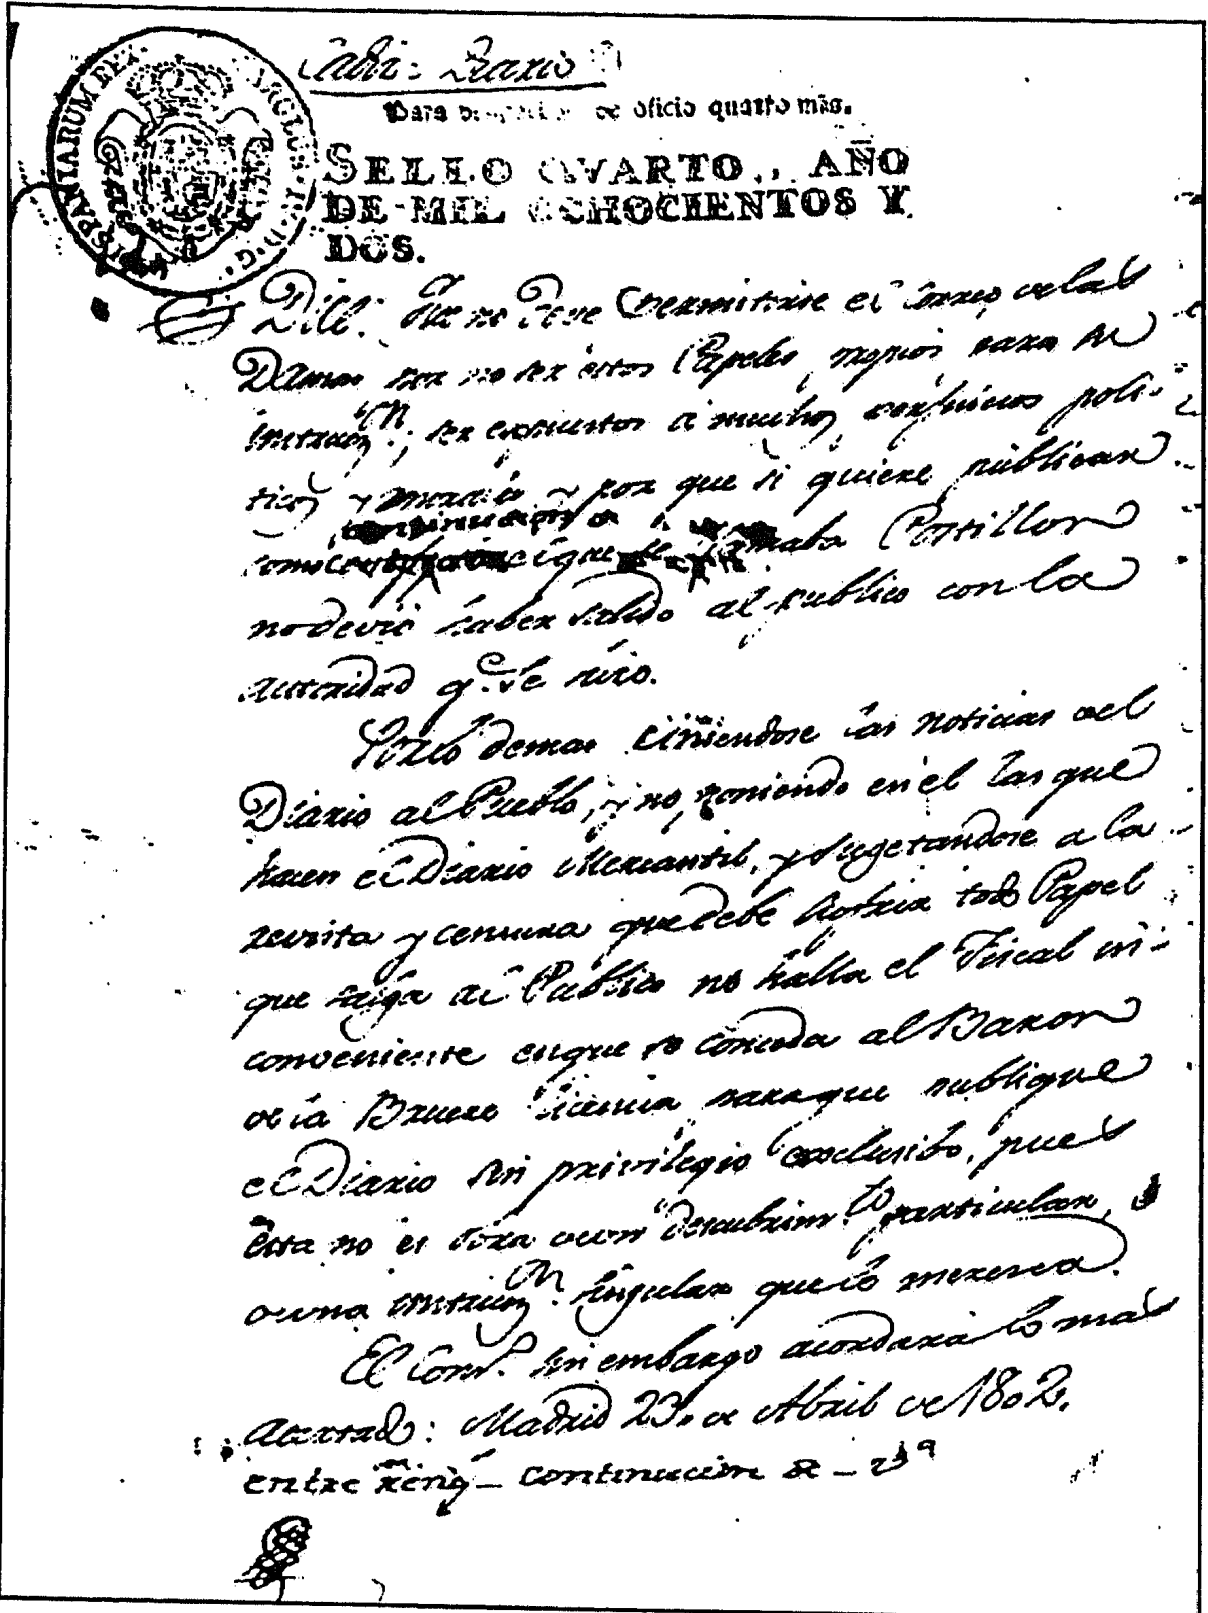 Cadiz: Diario
Para despachos de oficio quarto mrs.
HISPANIARUM REX CAROLUS IV D. G.
SELLO QVARTO, AÑO
DE MIL OCHOCIENTOS Y
DOS.
Dice: Que no deve permitirse el Correo de las
Damas por no ser estos Papeles propios para su
instruccⁿ., ser expuestos a muchos perjuicios poli-
ticos y morales y por que si quiere publicar
continuacion de
como que se llamaba Postillon
no devió haber salido al publico con la
autoridad q.e se hizo.
Por lo demas ciñiendose las noticias del
Diario al Pueblo, y no poniendo en el las que
hacen el Diario Mercantil, y sugetandose a la
revista y censura que debe sufrir todo Papel
que salga al Publico no halla el Fiscal in-
conveniente en que se conceda al Baron
de la Bruere licencia para que publique
el Diario sin privilegio exclusibo, pues
esta no es obra de un descubrim.to particular,
o una instruccⁿ. singular que lo meresca.
El Cons.o sin embargo acordará lo mas
acertado: Madrid 23. de Abril de 1802.
entre reng.s - continuacion de - v.a